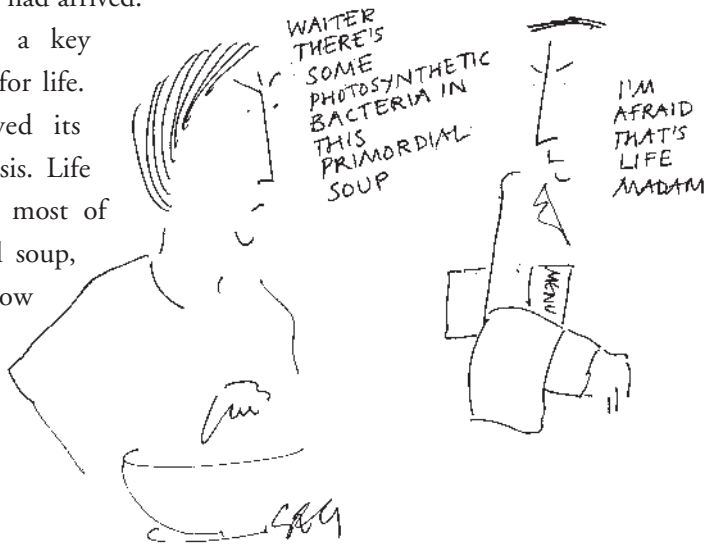 had arrived.
a key
for life.
ved its
sis. Life
most of
l soup,
ow
WAITER
THERE'S
SOME
PHOTOSYNTHETIC
BACTERIA IN
THIS
PRIMORDIAL
SOUP
I'M
AFRAID
THAT'S
LIFE
MADAM
MENU